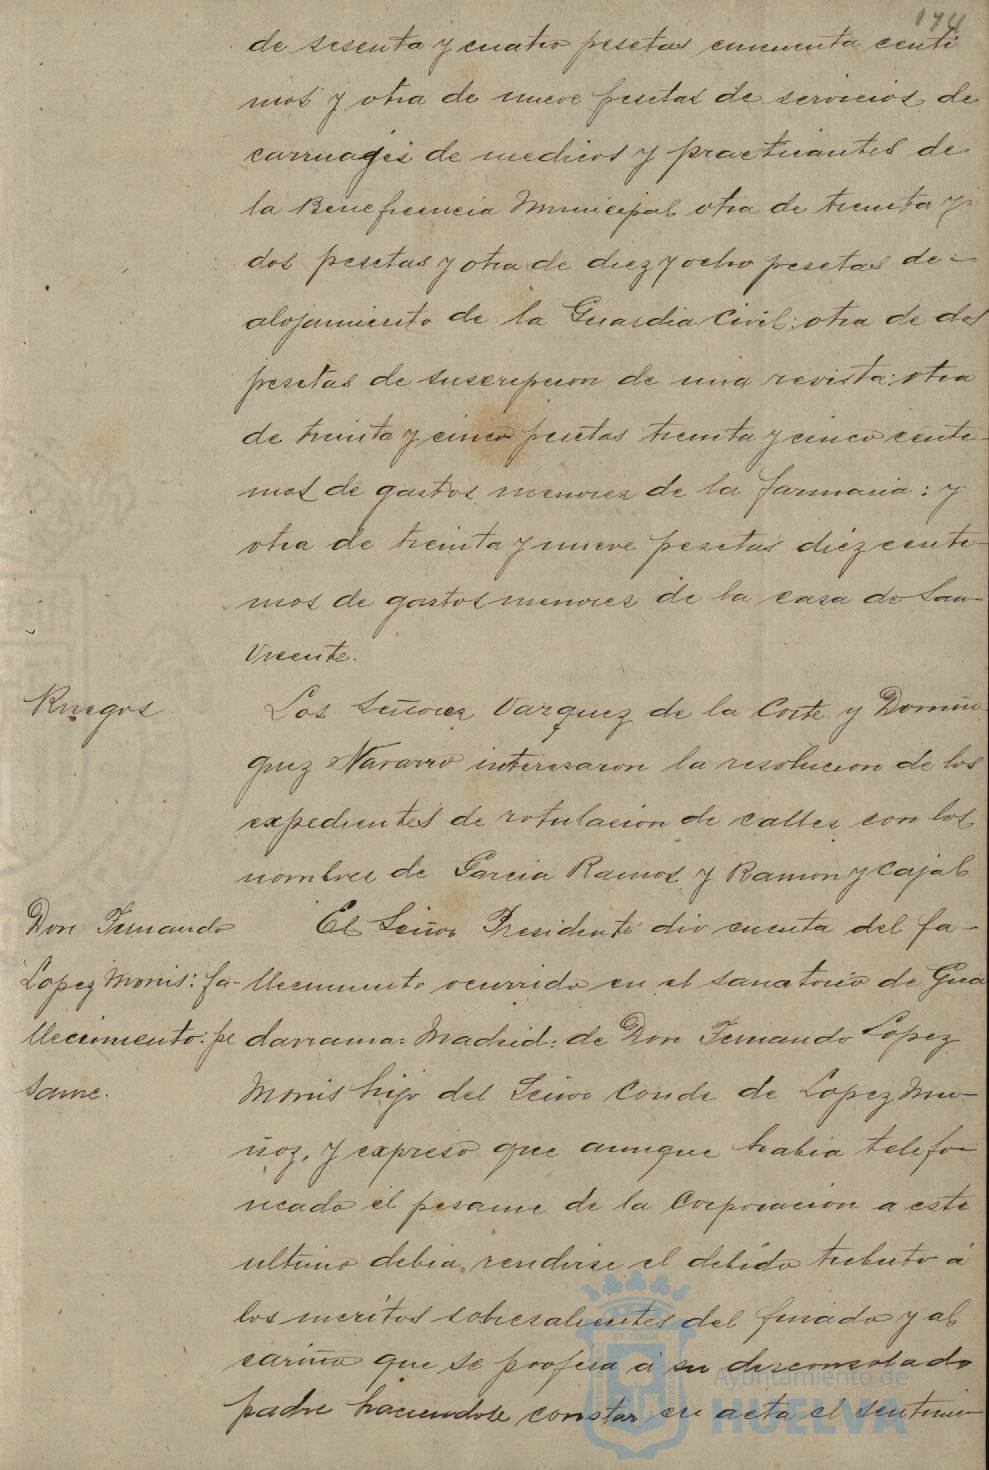 174
de sesenta y cuatro pesetas cincuenta centi
mos y otra de nueve pesetas de servicios de
carruages de medicos y practicantes de
la Beneficencia Municipal otra de treinta y
dos pesetas y otra de diez y ocho pesetas de
alojamiento de la Guardia Civil: otra de dos
pesetas de suscripcion de una revista: otra
de treinta y cinco pesetas treinta y cinco centi-
mos de gastos menores de la farmacia: y
otra de treinta y nueve pesetas diez centi-
mos de gastos menores de la casa de San
Vicente.
Ruegos
Los Señores Vazquez de la Corte y Domin-
guez Navarro interesaron la resolucion de los
expedientes de rotulacion de calles con los
nombres de Garcia Ramos y Ramon y Cajal
Don Fernando
Lopez Monis: fa-
llecimiento: pe
same.
El Señor Presidente dio cuenta del fa-
llecimiento ocurrido en el sanatorio de Gua
darrama: Madrid: de Don Fernando Lopez
Monis hijo del Señor Conde de Lopez Mu-
ñoz, y expreso que aunque habia telefo-
neado el pesame de la Corporacion a este
ultimo debia rendirse el debido tributo á
los meritos sobresalientes del finado y al
cariño que se profesa á su desconsolado
padre haciendose constar en acta el sentimien
Ayuntamiento de
HUELVA